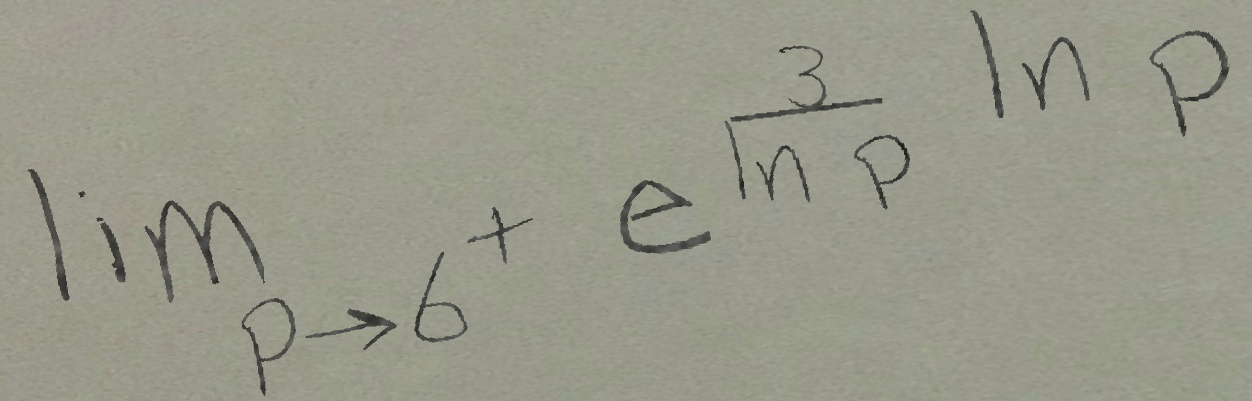 \lim_{p \to 6^+} e^{\frac{3}{\ln p}} \ln p